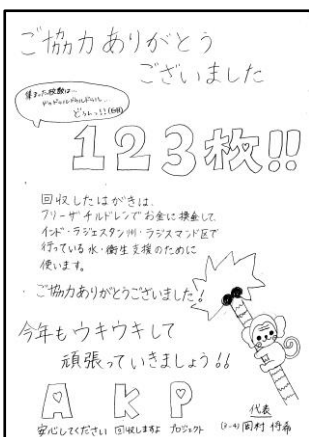 ご協力ありがとう
ございました
集まった枚数は…
どぅるどぅるどぅるどぅる…
どぅん!!!
123枚!!
回収したはがきは、
フリーザチルドレンでお金に換金して
インド・ラジェスタン州・ラジスマンド区で
行っている水・衛生支援のために
使います。
ご協力ありがとうございました!
今年もウキウキして
頑張っていきましょう!!
A K P
安心してください 回収しますよ プロジェクト
代表
(2-4)岡村